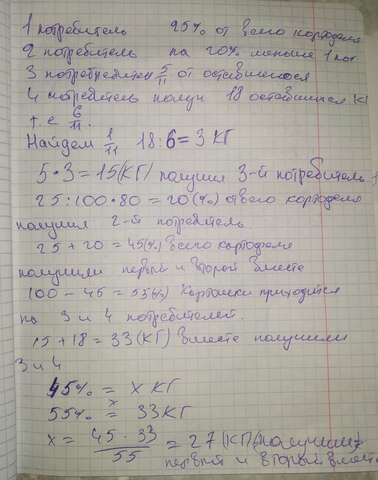 1 потребитель 25% от всего картофеля
2 потребитель на 20% меньше 1 пот
3 потребитель 5/11 от оставшегося
4 потребитель получ 18 оставшихся кг
т.е 6/11.
Найдем 1/11 18:6=3 кг
5·3=15(кг) получил 3-й потребитель
25:100·80=20(%) от всего картофеля
получил 2-й потребитель
25+20=45(%) всего картофеля
получили первый и второй вместе
100-45=55(%) картошки приходится
на 3 и 4 потребителей.
15+18=33(кг) вместе получили
3 и 4
45% = x кг
55% = 33кг
x = 45·33/55 = 27(кг) получили
первый и второй вместе